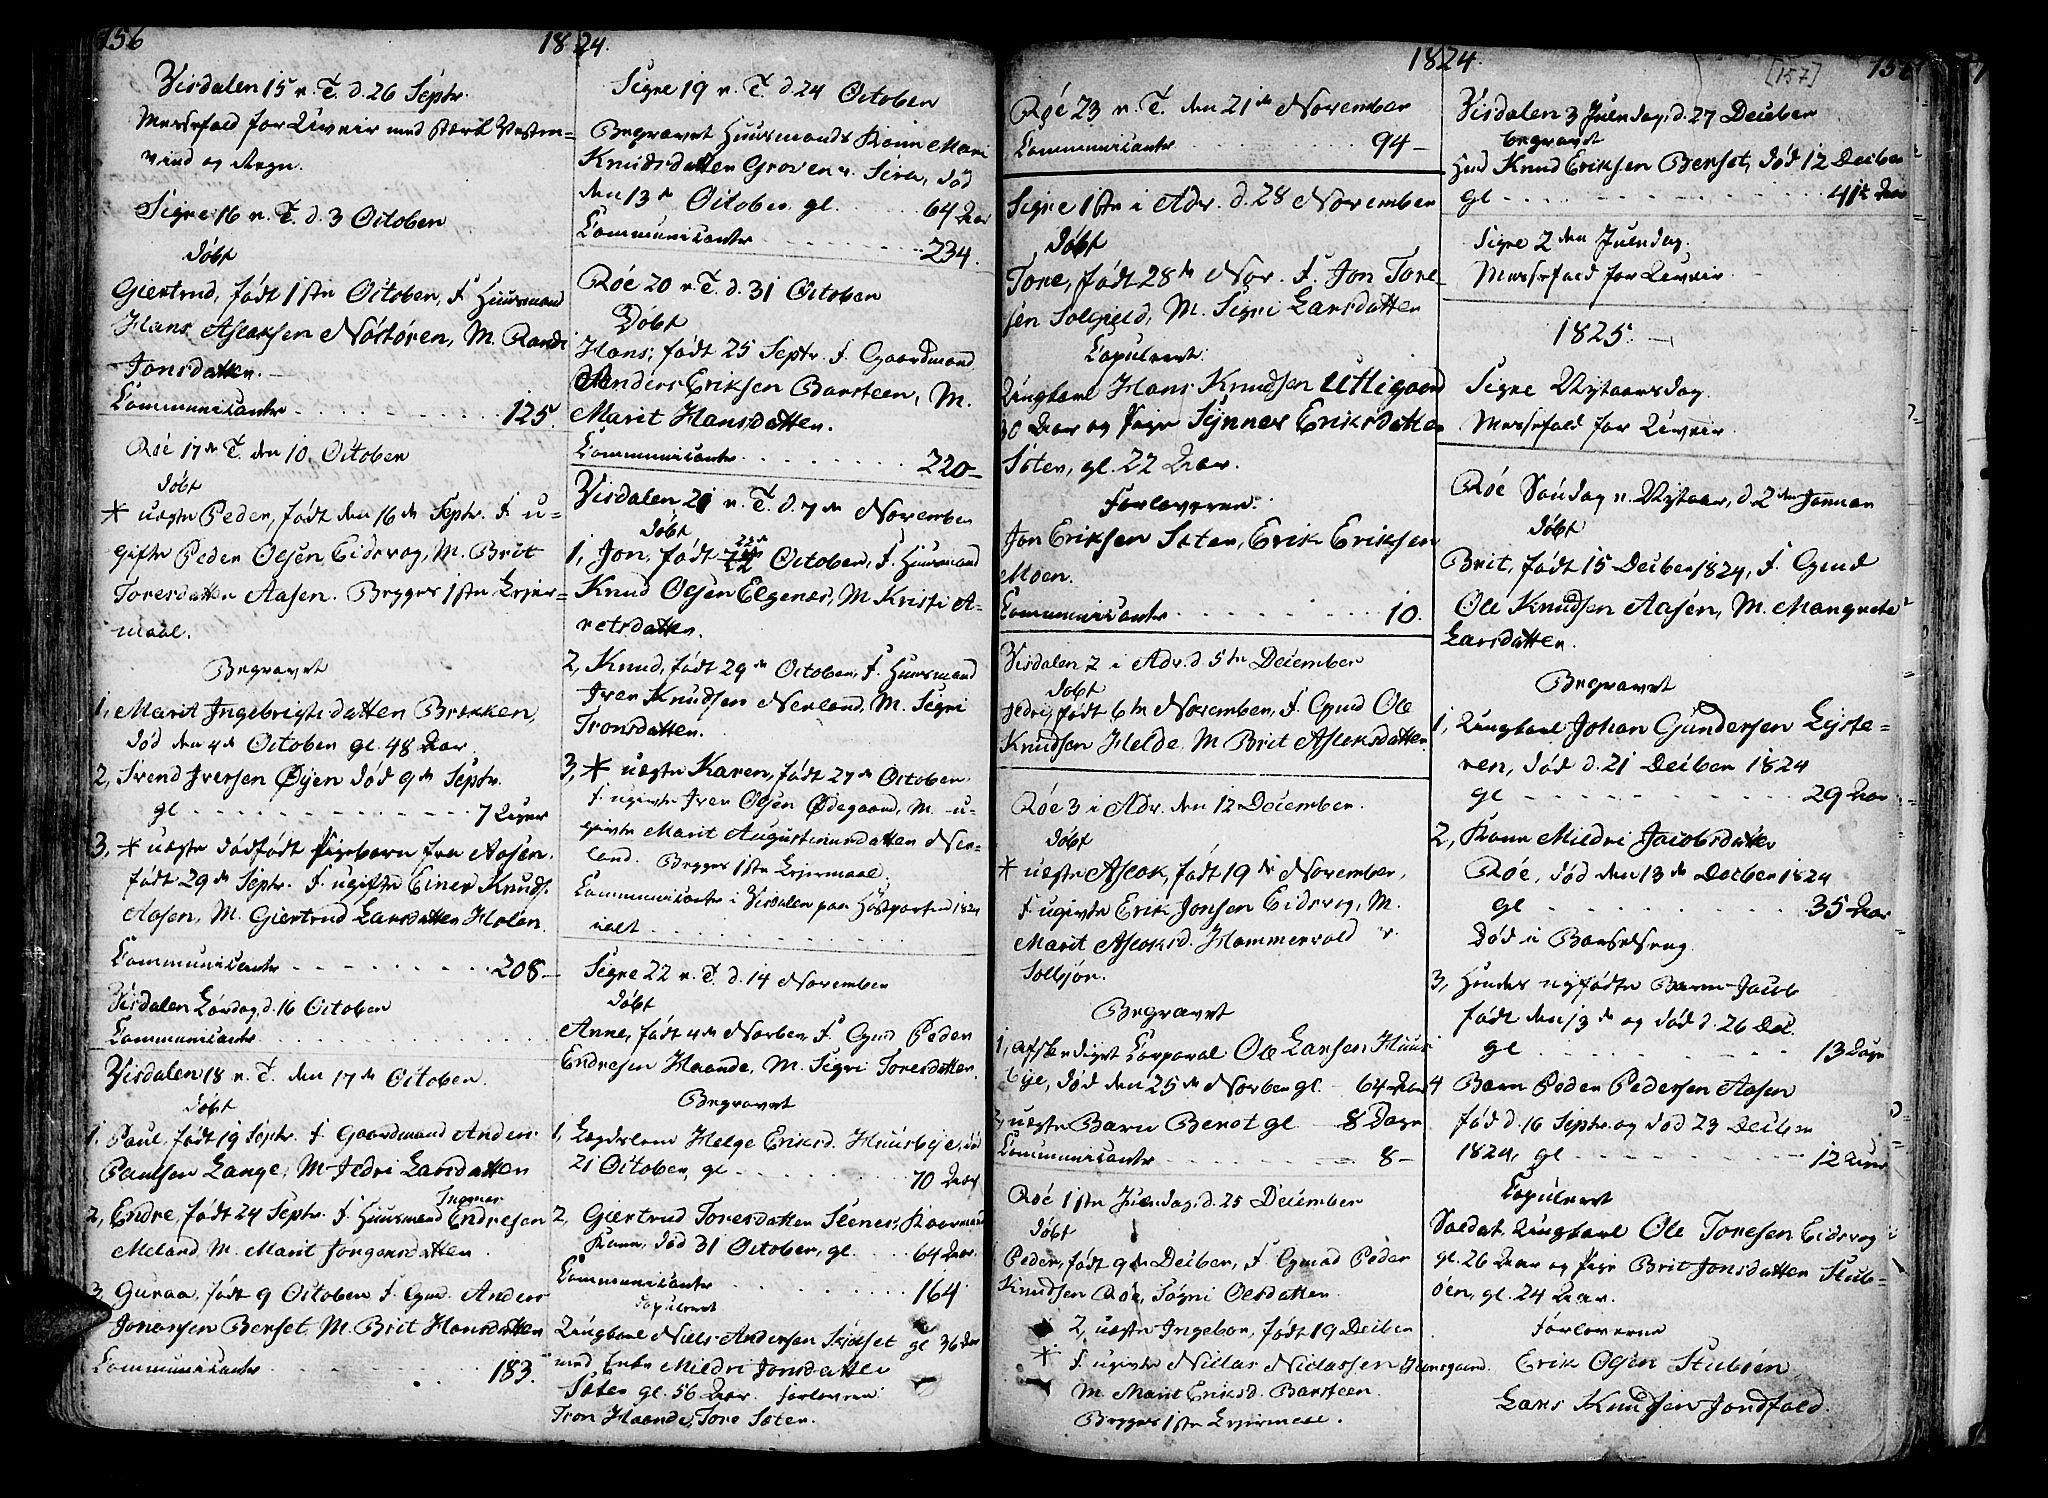 156
1824.
Visdalen 15 n. T. d. 26 Septr.
Messefald for Uveir med stærk Vesten-
vind og Regn.
Sigre 16 n. T. d. 3 October
Døbt
Giertrud, født 1ste October, F. Huusmand
Hans Aslaksen Nostøren, M. Rande
Jonsdatter.
Communicanter 125.
Røe 17de T. den 10 October
døbt
* uægte Peder, født den 16de Septr. F. u-
gifte Peder Olsen Eidsvog, M. Brit
Toresdatter Aasen. Begges 1ste Leier-
maal.
Begravet
1, Marit Ingebrigtsdatter Brækken,
død den 4de October gl. 48 Aar.
2, Svend Iversen Øyen død 9de Septr.
gl. 7 Uger
3, * uægte dødfødt Pigebarn fra Aasen.
født 29de Septr. F. ugifte Einer Knuds.
Aasen, M. Giertrud Larsdatter Holen.
Communicanter 208
Visdalen Løverdag d. 16 October
Communicanter
Visdalen 18 n. T. den 17de October.
døbt
1. Paul, født 19 Septr. F. Gaardmand Anders
Paulsen Lange, M. Jedri Larsdatter
2, Endre, født 24 Septr. F. Huusmand Ingmar Endresen
Meland, M. Marit Jørgensdatter.
3, Guraa, født 9 October F. Gmd. Anders
Jonassen Berset, M. Brit Hansdatter
Communicanter 183.
Sigre 19 n. T. d. 24 October
Begravet Huusmands Kone Mari
Knudsdatter Groven u. Sira, død
den 13de October gl. 64 Aar
Communicanter 234.
Røe 20 n. T. d. 31 October
Døbt
Hans, født 25 Septr. F. Gaardmand
Anders Eriksen Barsteen, M.
Marit Hansdatter.
Communicanter 220
Visdalen 21 n. T. d. 7de November
døbt
1, Jon, født 22de October, F. Huusmand
Knud Olsen Elgenæs, M. Kristi A-
retsdatter.
2, Knud, født 29de October, F. Huusmand
Iver Knudsen Nerland, M. Sigri
Tronsdatter.
3, * uægte Karen, født 27de October
F. ugivte Iver Olsen Ødegaard, M. u-
givte Marit Augustinusdatter Ner-
land. Begges 1ste Leiermaal.
Communicanter i Visdalen paa Høstparten 1824
ialt
Sigre 22 n. T. d. 14 November
døbt
Anne, født 4de Novber, F. Gmd Peder
Endresen Haande, M. Sigri Toresdatter.
Begravet
1, Lægdslem Helge Eriksd. Huusbye, død
21 October, gl. 70 Aar
2, Giertrud Toresdatter Stenes, Kaarmands
Kone, død 31 October, gl. 64 Aar.
Communicanter 164.
Copuleret
Ungkarl Niels Andersen Skolset gl 36 Aar
med Enke Mildri Jonsdatter
Soter gl. 56 Aar. Forlovere:
Tron Haande, Tore Soter.
1824.
[157]
157
Røe 23 n. T. den 21de November
Communicanter 94
Sigre 1ste i Adv. d. 28 November
døbt
Tore, født 28de Nov. F. Jon Tore-
sen Solgield, M. Sigri Larsdatter
Copuleret:
Ungkarl Hans Knudsen Utigaard
30 Aar og Pige Synnev Eriksdatter
Soter, gl. 22 Aar.
Forlovere:
Jon Eriksen Soter, Erik Eriksen
Moen.
Communicanter 10.
Visdalen 2 i Adv. d. 5te December
døbt
Jedri, født 6te November, F. Gmd Ole
Knudsen Helde, M. Brit Aslaksdatter
Røe 3 i Adv. den 12 December.
døbt
* uægte Aslak, født 19de November,
F. ugivte Erik Jonsen Eidsvog, M.
Marit Aslaksd. Hammervold v.
Solbjør.
Begravet
1, afskediget Corporal Ole Larsen Huus-
bye, død den 25de Novber gl. 64 Aar
2, uægte Barn Berot gl 8 Dage
Communicanter 8
Røe 1ste Juledag, d. 25 December
døbt
Peder, født 9de Deciber, F. Gmand Peder
Knudsen Røe, Sigri Olsdatter.
2, uægte Ingebor, født 19 Deciber
* F. ugivte Niclas Niclassen Hansgaard.
M. Marit Eriksd. Barsteen.
Begges 1ste Leiermaal.
Visdalen 3 Juledag, d. 27 Deciber
begravet
Hmd Knud Eriksen Berset, død 12 Deciber
gl. 41½ Aar
Sigre 2den Juledag.
Messefald for Uveir.
1825.
Sigre Nytaarsdag.
Messefald for Uveir.
Røe Søndag n. Nytaar, d. 2den Januar
døbt
Brit, født 15 Deciber 1824, F. Gmd
Ole Knudsen Aasen, M. Mangrete
Larsdatter.
Begravet
1, Ungkarl Johan Gundersen Lyste-
ren, død d. 21 Deciber 1824
gl. 29 Aar
2, Kone Mildri Jacobsdatter
Røe, død den 13de Decber 1824
gl. 35 Aar
Død i Barselseng.
3, Hendes nyfødte Barn Jacob
født den 13de og død d. 26 Dec.
gl. 13 Dage
4 Barn Peder Pedersen Aasen
fød d. 16 Septr. og død 23 Deciber
1824, gl. 12 Uger
Copuleret
Soldat, Ungkarl Ole Toresen Eidsvog
gl. 26 Aar og Pige Brit Jonsdatter Stub-
øen, gl. 24 Aar.
Forlovere
Erik Olsen Stubøen
Lars Knudsen Jondfald.